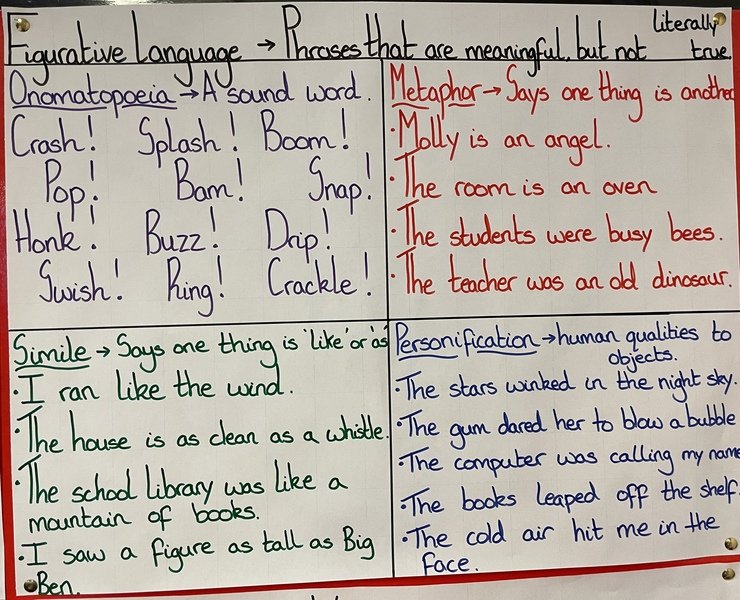 Figurative Language → Phrases that are meaningful, but not literally true.
Onomatopoeia → A sound word.
Crash! Splash! Boom!
Pop! Bam! Snap!
Honk! Buzz! Drip!
Swish! Ring! Crackle!
Metaphor → Says one thing is another
• Molly is an angel.
• The room is an oven
• The students were busy bees.
• The teacher was an old dinosaur.
Simile → Says one thing is 'like' or 'as'
• I ran like the wind.
• The house is as clean as a whistle.
• The school library was like a
mountain of books.
• I saw a figure as tall as Big
Ben.
Personification → human qualities to
objects.
• The stars winked in the night sky.
• The gum dared her to blow a bubble
• The computer was calling my name
• The books leaped off the shelf.
• The cold air hit me in the
face.